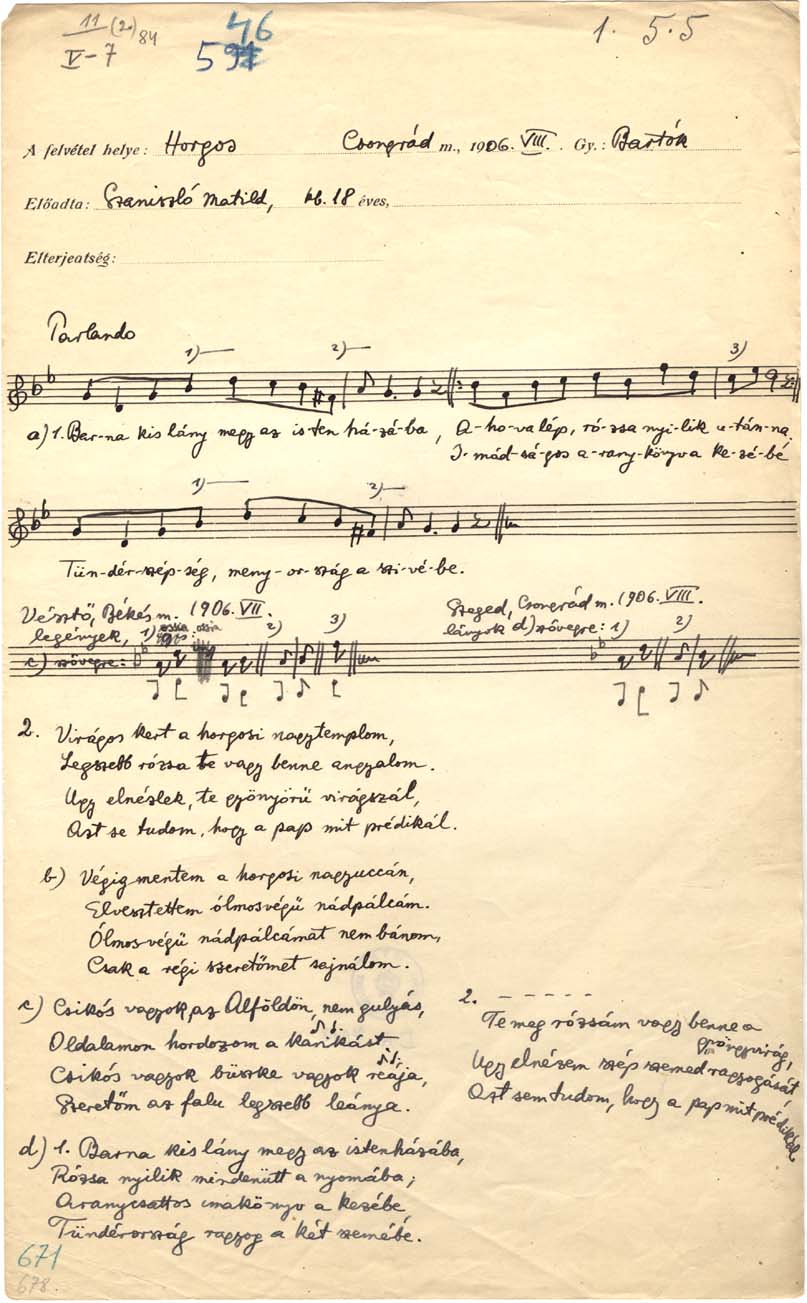 11 (2.) 84
V-7
46
591
1. 5.5
A felvétel helye: Horgos Csongrád m., 1906. VIII. Gy.: Bartók
Előadta: Szaniszló Matild, kb. 18 éves,
Elterjeatség:
Parlando
1) 2) 3)
a) 1. Bar-na kis lány megy az is-ten há-zá-ba, A-ho-va lép, ró-zsa nyi-lik u-tán-na.
I-mád-sá-gos a-rany-könyv a ke-zé-bé
1) 2)
Tün-dér-szép-ség, meny-or-szág a szi-vé-be.
Vésztő, Békés m. 1906. VII.
legények, 1) 2) 3)
c) szövegre:
Szeged, Csongrád m. 1906. VIII.
lányok d) szövegre: 1) 2)
2. Virágos kert a horgosi nagytemplom,
Legszebb rózsa te vagy benne angyalom.
Ugy elnézlek, te gyönyörü virágszál,
Azt se tudom, hogy a pap mit prédikál.
b) Végig mentem a horgosi nagyuccán,
Elvesztettem ólmosvégü nádpálcám.
Ólmosvégü nádpálcámat nem bánom,
Csak a régi szeretőmet sajnálom.
c) Csikós vagyok, az Alföldön, nem gulyás,
Oldalamon hordozom a karikást
Csikós vagyok büszke vagyok reája,
Szeretőm az falu legszebb leánya.
2. - - - - -
Te meg rózsám vagy benne a
gyöngyvirág,
Ugy elnézem szép szemed ragyogását
Azt sem tudom, hogy a pap mit prédikál
d) 1. Barna kis lány megy az istenházába,
Rózsa nyilik mindenütt a nyomába;
Aranycsattos imakönyv a kezébe,
Tündérország ragyog a két szemébé.
671
678.